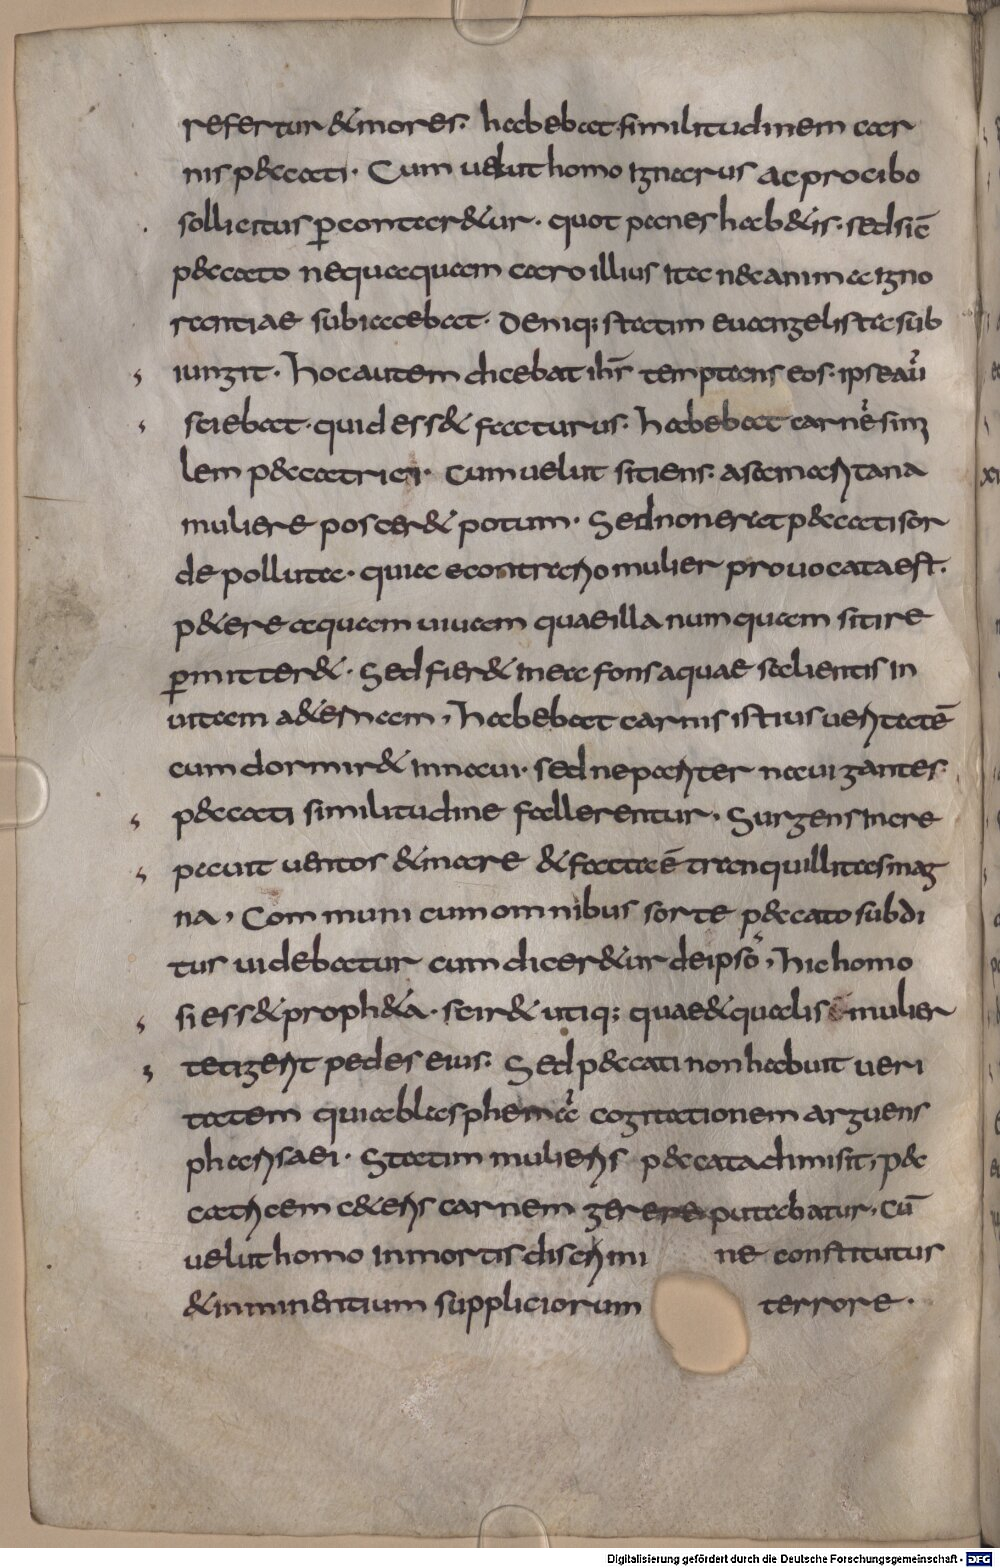 refertur & mores. habebat similitudinem car
nis peccati. Cum uelut homo ignarus ac pro cibo
sollicitus ꝑcontaretur. quot panes habetis. sed sic̄
peccato nequaquam caro illius ita nec anima igno
rantiae subiacebat. Deniq; statim euangelista sub
iungit. hoc autem dicebat ihs̄ temptans eos. ipse aū
sciebat. quid ess& facturus. habebat carnē simi
lem peccatrici. Cum uelut sitiens. a samaritana
muliere poscer& potum. Sed non erat peccati sor
de polluta. quia econtrario mulier prouocata est.
petere aquam uiuam quae illa numquam sitire
ꝑmitter&. Sed fier& in ea fons aquae salientis in
uitam aeternam, habebat carnis istius ueritatē
cum dormir& in naui. sed ne pariter nauigantes
peccati similitudine fallerentur. Surgens incre
pauit uentos & mare & facta ē tranquillitas mag
na, Communi cum omnibus sorte peccato subdi
tus uidebatur cum diceretur de ipso, hic homo
si ess& propheta. scir& utiq; quae & qualis mulier
tetigerit pedes eius. Sed peccati non habuit ueri
tatem quia blasphemā cogitationem arguens
pharisaei. Statim mulieris peccata dimisit, pec
catricem eteris carnem gerere putabatur, Cū
uelut homo in mortis discrimi ne constitutus
& imminentium suppliciorum terrore.
Digitalisierung gefördert durch die Deutsche Forschungsgemeinschaft - DFG